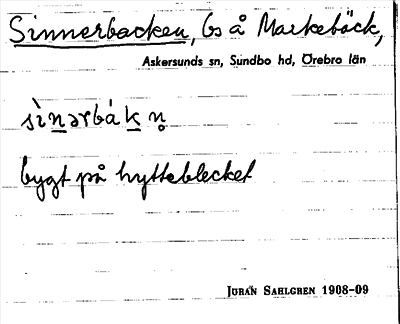 Sinnerbacken, ls å Markebäck,
Askersunds sn, Sundbo hd, Örebro län
sìnərbák n̥
bygt på hytteblecket
Jöran Sahlgren 1908-09